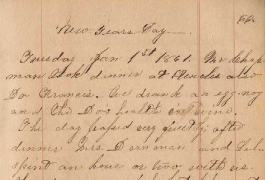 66.
New Years Day
Tuesday Jan 1st 1861. Mr Chap
man took dinner at also
Dr Francis. We drank an egg nog
and the Dr's health in wine.
The day passed very quietly after
dinner Mrs Dearman and
spent an hour or two with us.